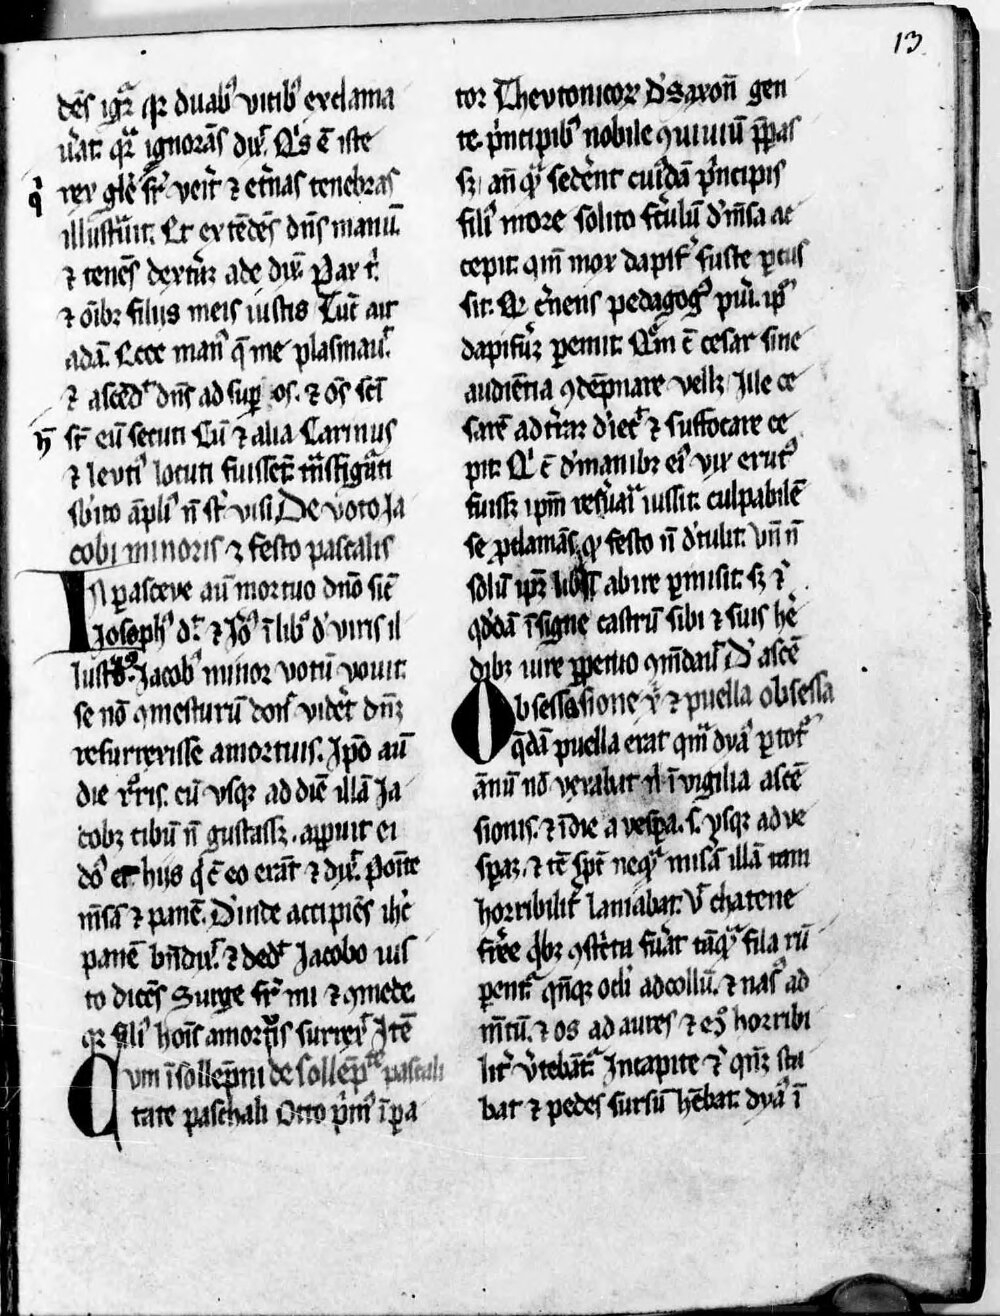 13
dēs igͬ qr duabꝫ vicibꝫ exclama
v̓at qͬ ignorās dix̄ Qͥs ē iste
rex glē srͬ venit ⁊ etn̄as tenebras
illustͣuit. Et extēdēs dn̄s manū.
⁊ tenēs dextm̄ ade dix̄ Pax tͥ
⁊ oībꝫ filiis meis iustis Tūc ait
adā. Ecce manꝰ q̄ me plasmauͭ
⁊ ascēdͭ dn̄s ad suposͬ ⁊ oēs scī
sͭ eū secuti Cū ⁊ alia Carinus
⁊ leutiꝰ locuti fuissēt tͣnsfigͣti
sbͥito āpliꝰ n̄ sͭ visi De voto Ja
cobi minoris ⁊ festo pascalis
In pasceve au̅ mortuo dn̄o sic̄
Josephꝰ dͭ ⁊ Joꝰ ī libͦ dͤ viris il
lustͥbꝰ. Jacobꝰ minor votū vovit
se nō ꝯmesturū donͨ vidēt dn̄ꝫ
resurrexisse a mortuis. Ipō au̅
die rͬris. cū vsqꝫ ad diē illā Ja
cobꝫ cibū n̄ gustassꝫ. apparuit ei
dō et hiis qͥ cͫ eo erāt ⁊ dix̄ Poīte
mīsā ⁊ panē. Dͤinde accipiēs ihc̄
panē bn̄dixͭ ⁊ dedͭ Jacobo ius
to dicēs Surge fͬ mi ⁊ ꝯmede.
qr filiꝰ hoīs a mortͥis surrexͭ Itē
Cum ī sollēpni de sollēpte pascali
tate paschali Otto pͥmꝰ īpa
tor Theutonicoꝝ dͤ saxon̄ gen
te. pͥncipibꝫ nobile ꝯuiuiū ꝑpas
sꝫ ān qͣ sedēnt cuidā pͥncipis
filiꝰ more solito fͨulū dͤ mīsa ac
cepit. qm̄ mox dapifͬ fuste ꝑcus
sit. Qͩ cͬnens pedagogꝰ pu͂i. ipꝫ
dapifͬꝫ ꝑemit. Qͫ c̄ cesar sine
audiētia ꝯdēpnare vellꝫ Ille ce
sarē ad tͬrā dͤiecͭ ⁊ suffocare ce
pit. Qͥ c̄ dͤ manibꝫ eiꝰ vix erutꝰ
fuissꝫ ipm̄ resͬuaͥ iussit. culpabilē
se ꝓclamās. qͩ festo n̄ dͤtulit. Vn̄ n̄
solū ipꝫ libͬū abire ꝑmisit. sꝫ ⁊
qͦddā īsigne castrū sibi ⁊ suis hē
dibꝫ iure ꝑpetuo ꝯmēdauͭ Dͤ ascē
Obsessa sione xͥ ⁊ puella obsessa
q̄dā puella erat qm̄ dyaꝰ ꝑ totꝫ
ānū nō vexabat nͥ ī vigilia ascē
sionis. ⁊ ī die a vespa. s. vsqꝫ ad ve
spaꝫ. ⁊ tc̄ spc̄ neqͣ misā illā tam
horribilitͬ laniabat. Vͭ chatene
fͬree qͥbꝫ ꝯstͥcta fūat tāqͣ fila rū
perentͬ qn̄qꝫ ocli ad collū. ⁊ nasꝰ ad
mētū. ⁊ os ad aures ⁊ eꝯͦ horribi
litͬ vͬtebātͬ In capite ⁊ qn̄qꝫ sta
bat ⁊ pedes sursū hēbat. dyaꝰ ī